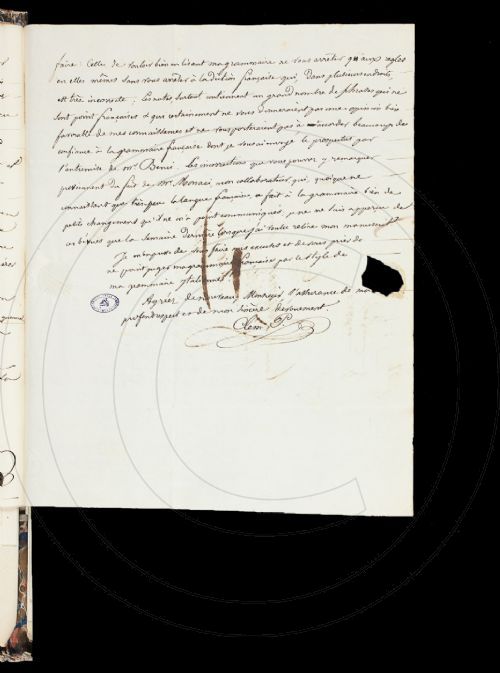 faire: Celle de vouloir bien en lisant ma grammaire ne vous arrêter qu aux regles
en elles mêmes sans vous arrêter à la diction française qui, dans plusieurs endroits,
est très incorrecte; les notes surtout contiennent un grand nombre de phrases qui ne
sont point françaises & qui certainement ne vous donneraient pas une opinion bien
favorable de mes connaissances et ne vous porteraient pas à accorder beaucoup de
confiance à la grammaire française dont je vous ai envoyé le prospectus par
l'entremise de Mr. Benci. Les incorrections que vous pourrez y remarquer
proviennent du fait de Mr. Monaci, mon collaborateur, qui, quoique ne
connaissant que très peu la langue française, a fait à la grammaire bien de
petits changements qu'il ne m'a point communiqués, je ne me suis apperçu de
ces que la Semaine dernière lorsque j'ai voulu relire mon manuscrit
Je m'empresse de vous faire mes excuses et de vous prier de
ne point juger ma grammaire française par le style de
ma grammaire italienne.
Agréez de nouveau, Monsieur l'assurance de mon
profond respect et de mon sincère dévouement.